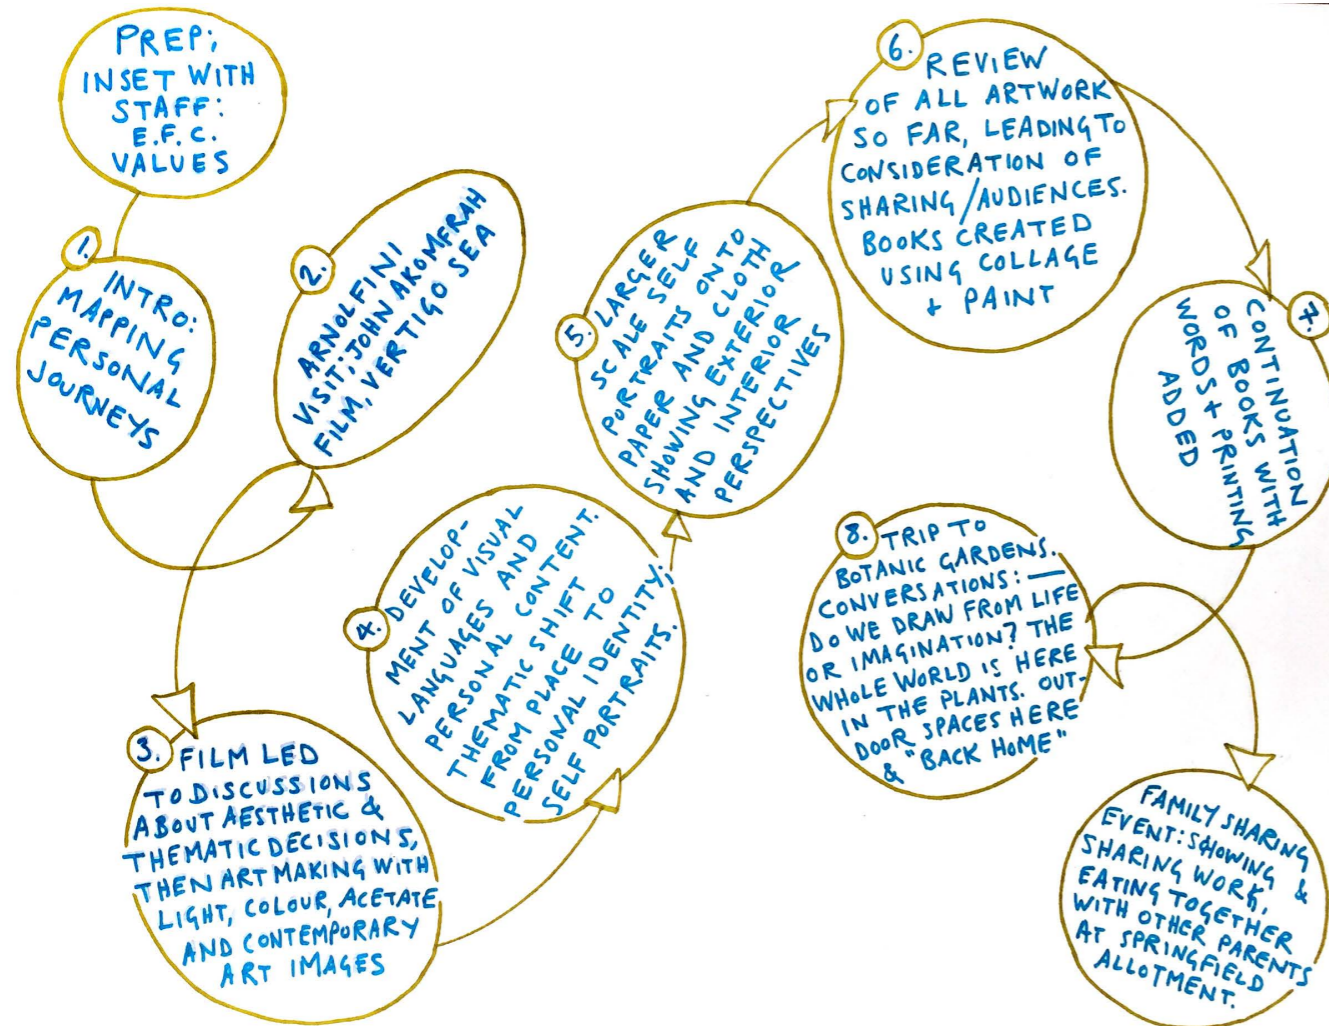 PREP;
INSET WITH
STAFF:
E.F.C.
VALUES
1.
INTRO:
MAPPING
PERSONAL
JOURNEYS
2.
ARNOLFINI
VISIT; JOHN AKOMFRAH
FILM, VERTIGO SEA
3. FILM LED
TO DISCUSSIONS
ABOUT AESTHETIC &
THEMATIC DECISIONS,
THEN ART MAKING WITH
LIGHT, COLOUR, ACETATE
AND CONTEMPORARY
ART IMAGES
4. DEVELOP-
MENT OF VISUAL
LANGUAGES AND
PERSONAL CONTENT.
THEMATIC SHIFT
FROM PLACE TO
PERSONAL IDENTITY;
SELF PORTRAITS.
5. LARGER
SCALE SELF
PORTRAITS ONTO
PAPER AND CLOTH
SHOWING EXTERIOR
AND INTERIOR
PERSPECTIVES
6. REVIEW
OF ALL ARTWORK
SO FAR, LEADING TO
CONSIDERATION OF
SHARING/AUDIENCES.
BOOKS CREATED
USING COLLAGE
+ PAINT
7.
CONTINUATION
OF BOOKS WITH
WORDS + PRINTING
ADDED
8. TRIP TO
BOTANIC GARDENS.
CONVERSATIONS: —
DO WE DRAW FROM LIFE
OR IMAGINATION? THE
WHOLE WORLD IS HERE
IN THE PLANTS. OUT-
DOOR SPACES HERE
& "BACK HOME"
FAMILY SHARING
EVENT: SHOWING &
SHARING WORK,
EATING TOGETHER
WITH OTHER PARENTS
AT SPRINGFIELD
ALLOTMENT.